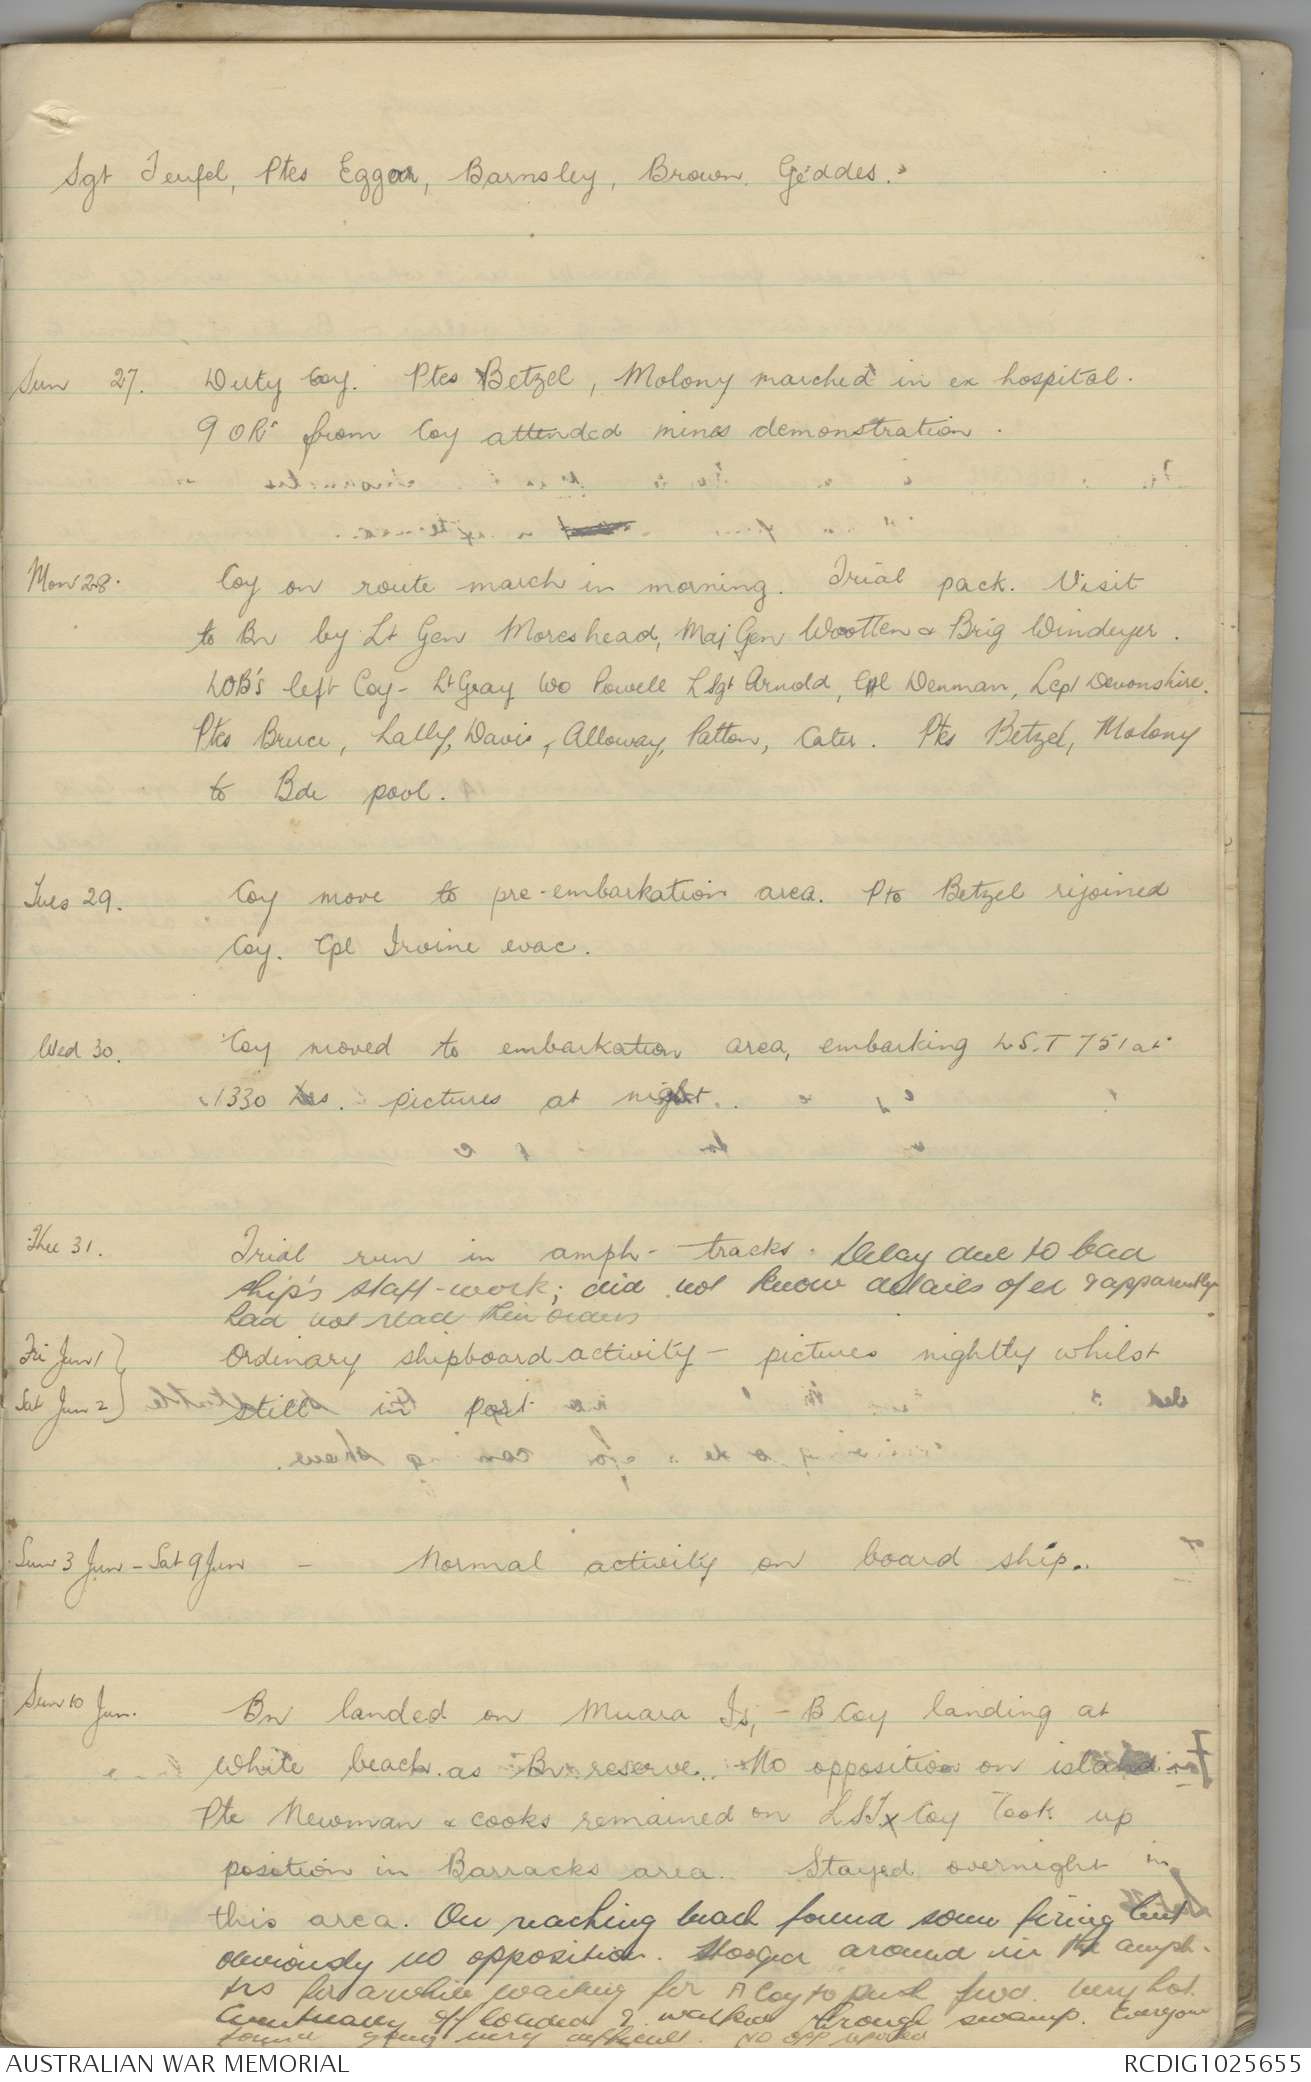 Sgt Teufel, Ptes Eggar, Barnsley, Brown, Geddes.
Sun 27. Duty Coy. Ptes Betzel, Molony marched in ex hospital.
9 ORs from Coy attended mines demonstration.
Mon 28. Coy on route march in morning. Trial pack. Visit
to Bn by Lt Gen Moreshead, Maj Gen Wootten & Brig Windeyer.
LOB's left Coy - Lt Gray WO Powell LSgt Arnold, Cpl Denman, Lcpl Devonshire.
Ptes Bruce, Lally, Davis, Alloway, Patton, Cater. Ptes Betzel, Molony
to Bde pool.
Tues 29. Coy move to pre-embarkation area. Pte Betzel rejoined
Coy. Cpl Irvine evac.
Wed 30. Coy moved to embarkation area, embarking L.S.T 751 at
1330 hrs. pictures at night.
Thu 31. Trial run in amph- tracks. Delay due to bad
ship's staff-work; did not know details of ex & apparently
had not read their orders
Fri Jun 1 Ordinary shipboard activity - pictures nightly whilst
Sat Jun 2 still in port
Sun 3 Jun - Sat 9 Jun - Normal activity on board ship.
Sun 10 Jun. Bn landed on Muara Is, - B Coy landing at
white beach as Bn reserve. No opposition on island
Pte Newman & cooks remained on LST Coy took up
position in Barracks area. Stayed overnight in
this area. On reaching beach found some firing but
obviously no opposition. around in the amph.
trs for a while waiting for A Coy to push fwd. Very hot.
Eventually off loaded & walked through swamp. Everyone
found going very difficult. No opp
AUSTRALIAN WAR MEMORIAL RCDIG1025655